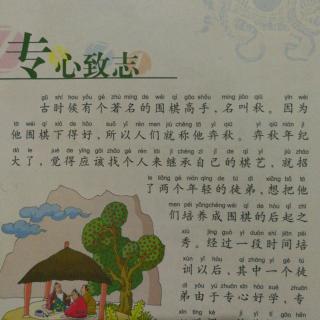 专心致志
gǔ shí hou yǒu gè zhù míng de wéi qí gāo shǒu míng jiào qiū yīn wèi
古时候有个著名的围棋高手，名叫秋。因为
tā wéi qí xià de hǎo suǒ yǐ rén men jiù chēng tā yì qiū yì qiū nián jì
他围棋下得好，所以人们就称他弈秋。弈秋年纪
dà le jué de yīng gāi zhǎo gè rén lái jì chéng zì jǐ de qí yì jiù zhāo
大了，觉得应该找个人来继承自己的棋艺，就招
le liǎng gè nián qīng de tú dì xiǎng bǎ tā
了两个年轻的徒弟，想把他
men péi yǎng chéng wéi qí de hòu qǐ zhī
们培养成围棋的后起之
xiù jīng guò yí duàn shí jiān péi
秀。经过一段时间培
xùn yǐ hòu qí zhōng yí gè tú
训以后，其中一个徒
dì yóu yú zhuān xīn hào xué zhuān
弟由于专心好学，专